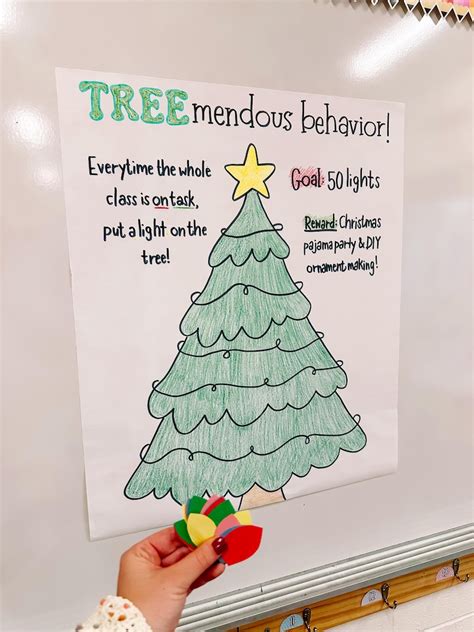 TREEmendous behavior!
Everytime the whole
class is on task,
put a light on the
tree!
Goal: 50 lights
Reward: Christmas
pajama party & DIY
ornament making!